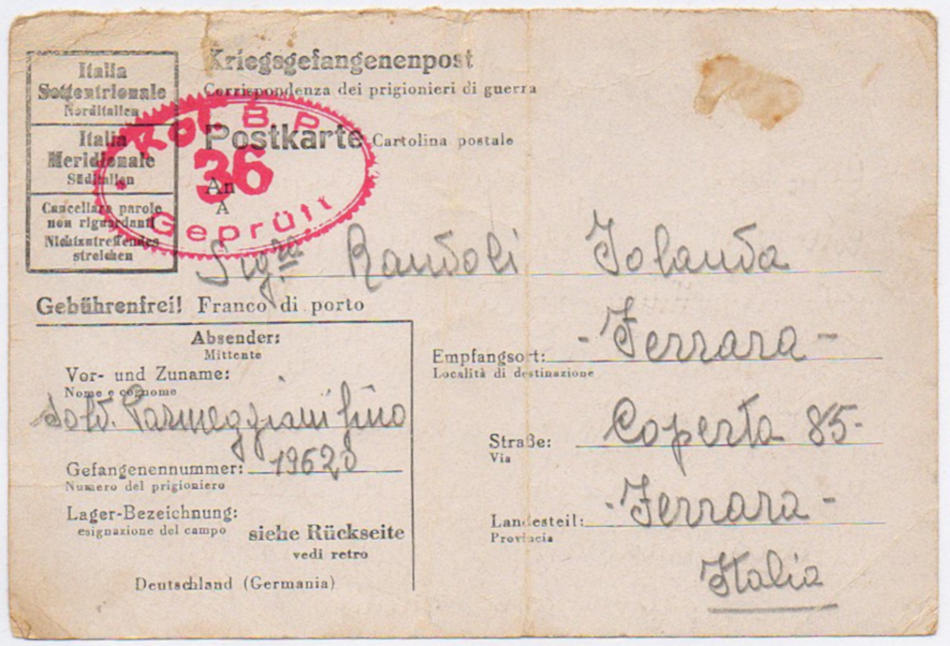 Italia
Settentrionale
Norditalien
Italia
Meridionale
Süditalien
Cancellare parole
non riguardanti
Nichtzutreffendes
streichen
Kriegsgefangenenpost
Corrispondenza dei prigionieri di guerra
Postkarte Cartolina postale
36
Geprüft
An
A
Sig.ra Randoli Iolanda
Gebührenfrei! Franco di porto
Absender:
Mittente
Vor- und Zuname:
Nome e cognome
Sold. Parmeggiani Gino
Gefangenennummer:
Numero del prigioniero
Lager-Bezeichnung:
esignazione del campo
siehe Rückseite
vedi retro
Deutschland (Germania)
Empfangsort: - Ferrara -
Località di destinazione
Straße: Coperta 85-
Via
Landesteil: - Ferrara -
Provincia
Italia